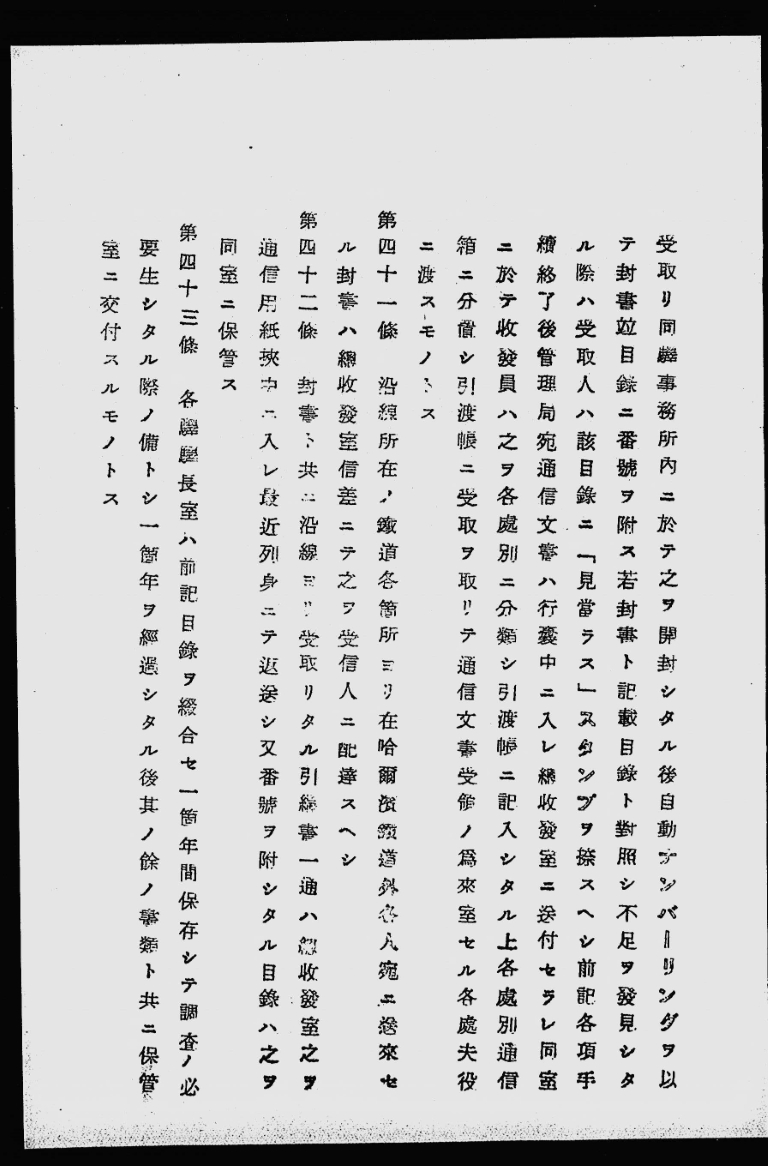 受取リ同驛事務所內ニ於テ之ヲ開封シタル後自動ナンバーリングヲ以
テ封書竝目錄ニ番號ヲ附ス若封書ト記載目錄ト對照シ不足ヲ發見シタ
ル際ハ受取人ハ該目錄ニ「見當ラス」スタンプヲ捺スヘシ前記各項手
續終了後管理局宛通信文書ハ行囊中ニ入レ總收發室ニ送付セラレ同室
ニ於テ收發員ハ之ヲ各處別ニ分類シ引渡帳ニ記入シタル上各處別通信
箱ニ分置シ引渡帳ニ受取ヲ取リテ通信文書受領ノ爲來室セル各處夫役
ニ渡スモノトス
第四十一條 沿線所在ノ鐵道各箇所ヨリ在哈爾濱鐵道外各人宛ニ送來セ
ル封書ハ總收發室信差ニテ之ヲ受信人ニ配達スヘシ
第四十二條 封書ト共ニ沿線ヨリ受取リタル引繼書一通ハ總收發室之ヲ
通信用紙挾中ニ入レ最近列身ニテ返送シ又番號ヲ附シタル目錄ハ之ヲ
同室ニ保管ス
第四十三條 各驛驛長室ハ前記目錄ヲ綴合セ一箇年間保存シテ調査ノ必
要生シタル際ノ備トシ一箇年ヲ經過シタル後其ノ餘ノ書類ト共ニ保管
室ニ交付スルモノトス